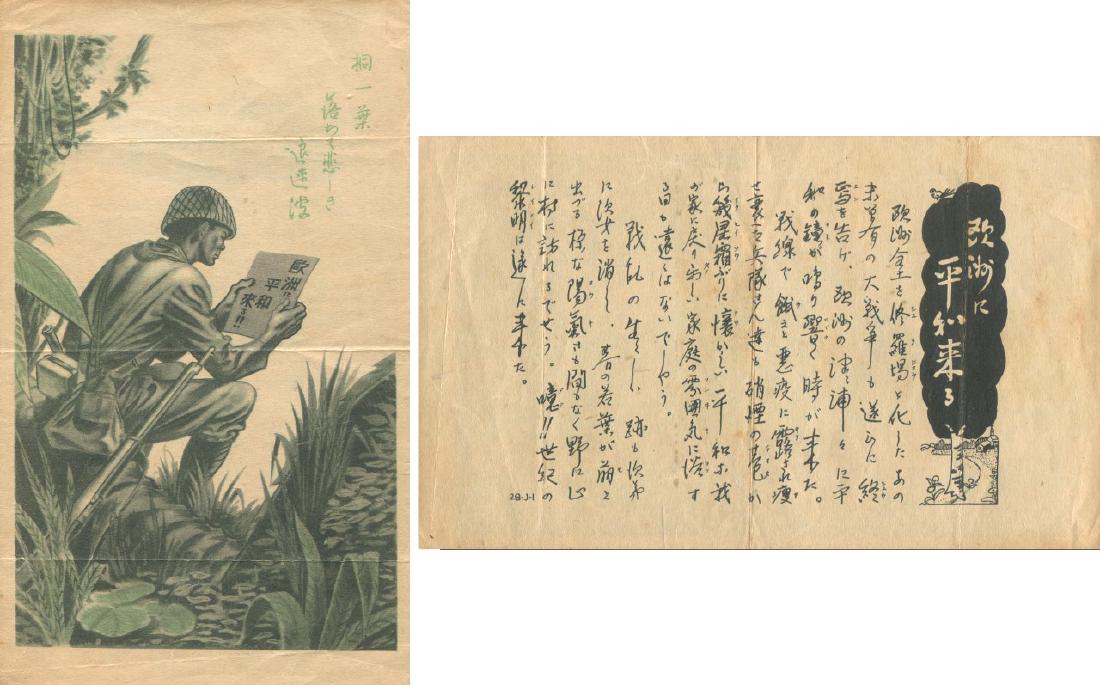 桐一葉
落ちて悲しき
歐洲に
平和
来る!!
欧洲に
平和来る
欧洲全土を修羅場と化したあの
未曽有の大戦争も遂に終
焉を告げ、欧洲の津々浦々に平
和の鐘が鳴り響く時が来た。
戦線で餓えと悪疫に露され痩
せ衰えた兵隊さん達も硝煙の巷か
ら幾星霜ぶりに懐かしい平和な我
が家に戻り楽しい家庭の雰囲気に浴す
る日も遠くはないでしやう。
戦乱の生々しい跡も次第
に姿を消し、春の若葉が萌え
出づる様な陽氣さも間もなく野に山
に村に訪れるでせう。噫!!世紀の
黎明は遂に来た。
28-J-1